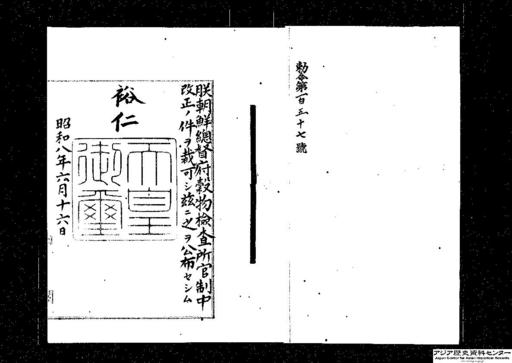 勅令第百三十七號
朕朝鮮總督府穀物檢査所官制中
改正ノ件ヲ裁可シ玆ニ之ヲ公布セシム
裕仁
天皇
御璽
昭和八年六月十六日
アジア歴史資料センター
Japan Center for Asian Historical Records